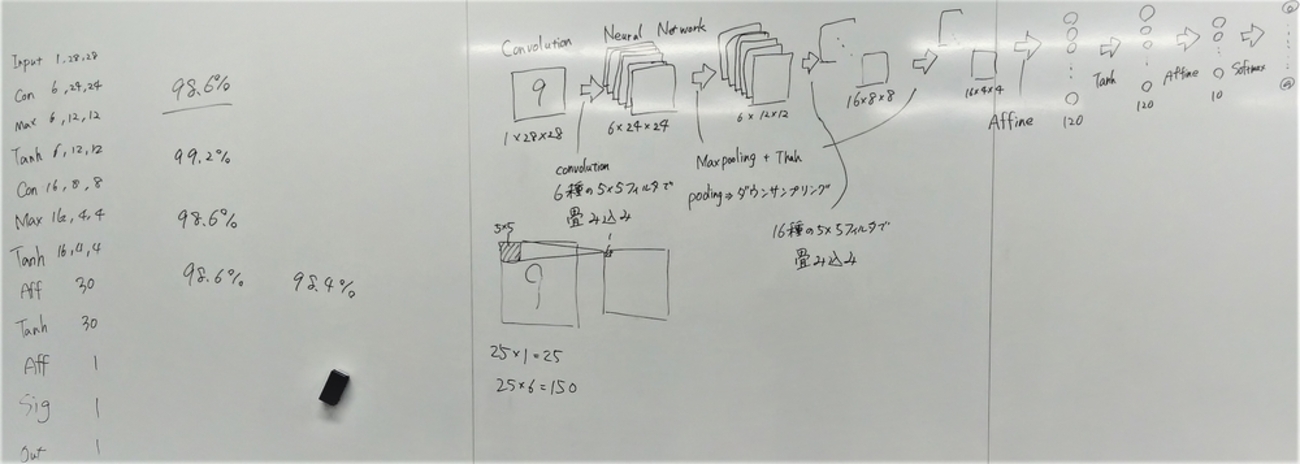 Input 1,28,28
Con 6,24,24
Max 6,12,12
Tanh 6,12,12
Con 16,8,8
Max 16,4,4
Tanh 16,4,4
Aff 30
Tanh 30
Aff 1
Sig 1
Out 1
98.6%
99.2%
98.6%
98.6% 98.4%
Convolution Neural Network
9
1×28×28
6×24×24
6×12×12
16×8×8
16×4×4
convolution
6種の5×5フィルタで
畳み込み
Maxpooling + Thah
pooling⇒ダウンサンプリング
16種の5×5フィルタで
畳み込み
Affine
120
Tanh
120
Affine
10
Softmax
5×5
9
25×1=25
25×6=150